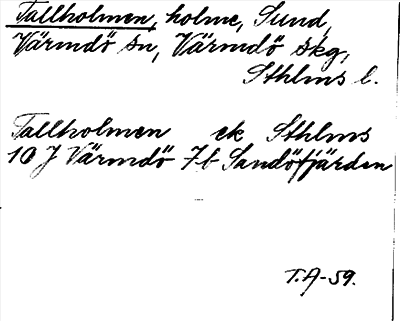 Tallholmen, holme, Sund,
Värmdö sn, Värmdö skg,
Sthlms l.
Tallholmen ek Sthlms
10 J Värmdö 7b Sandöfjärden
T.A-59.